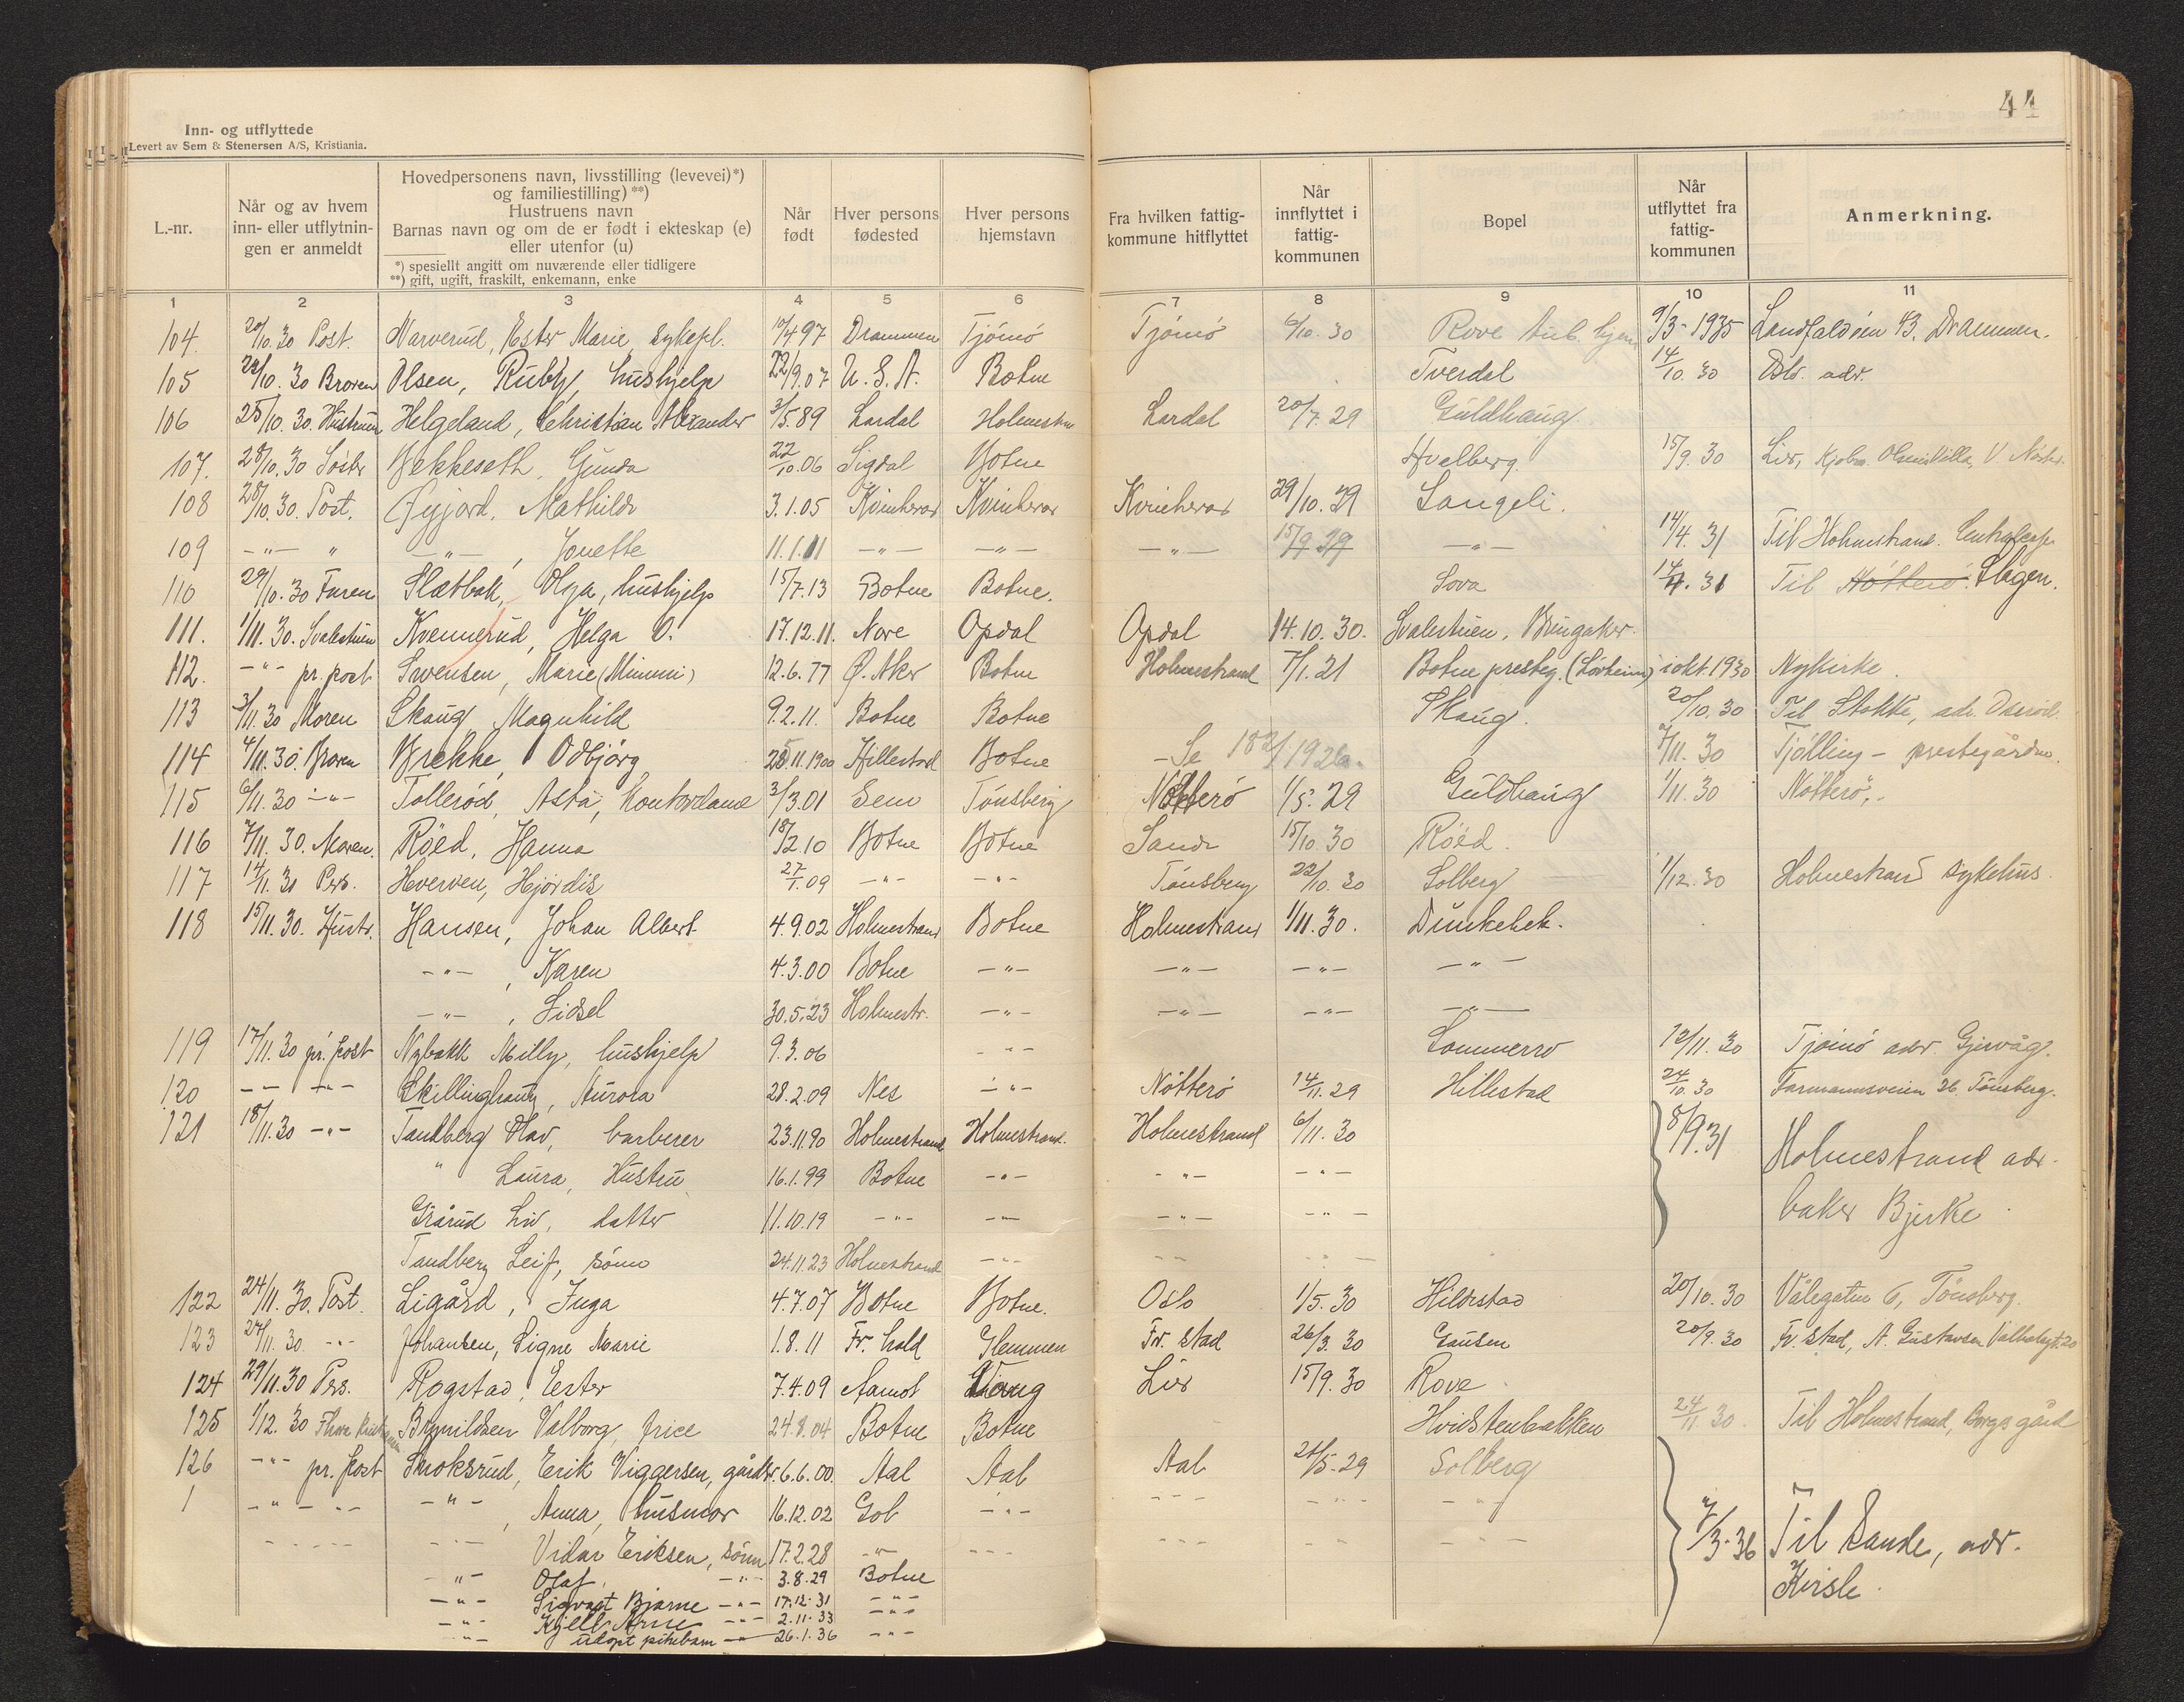 44
Inn- og utflyttede
Levert av Sem & Stenersen A/S, Kristiania.
L.-nr.
Når og av hvem inn- eller utflytnin-gen er anmeldt
Hovedpersonens navn, livsstilling (levevei)*) og familiestilling) **)
Hustruens navn
Barnas navn og om de er født i ekteskap (e) eller utenfor (u)
*) spesiellt angitt om nuværende eller tidligere
**) gift, ugift, fraskilt, enkemann, enke
Når født
Hver persons fødested
Hver persons hjemstavn
Fra hvilken fattig-kommune hitflyttet
Når innflyttet i fattig-kommunen
Bopel
Når utflyttet fra fattig-kommunen
Anmerkning.
1 2 3 4 5 6 7 8 9 10 11
104. 20/10.30 Post. Narverud, Ester Marie, sykepl. 10/4 97 Drammen Tjømø Tjømø 6/10. 30 Rove 9/3-1935 Landfaldøien 43, Drammen.
105 22/10. 30 Broren Olsen, Ruby, hushjelp 22/9.07 U.S.A. Botne Tverdal 14/10. 30 Oslo. adr.
106 25/10. 30. Hustruen Helgeland, Christian Alexander 3/5.89 Lardal Holmestran Lardal 20/7. 29 Guldhaug
107. 28/10. 30 Søster Bekkeseth, Gunda 22/10.06 Sigdal Botne Hvalberg. 15/9. 30 Lier,
108 28/10. 30. Post. Øyjord, Mathilde 3.1.05 Kvinherad Kvinherad Kvinherad 29/10. 29 Langeli.
109 -"- " -"-, Jonette 11.1.11 -"- -"- -"- 15/9 29 -"- 14/4. 31 Til Holmestrand.
110 29/10. 30 Faren Slatbak, Olga, hushjelp 15/7.13 Botne Botne. Sova 14/4. 31 Til Nøtterø. Slagen.
111. 1/11. 30. Svalestuen Kvennerud, Helga O. 17.12.11. Nore Opdal Opdal 14.10.30. Svalestuen, Bringaker.
112. -"- pr. post Svensen, Marie (Mimmi) 12.6.77 Ø. Aker Botne Holmestrand 7/1.21 Botne presteg. (Lövheim) i okt. 1930 Nykirke.
113 3/11.30 Moren Skaug, Magnhild 9.2.11. Botne Botne Skaug. 20/10. 30 Til Stokke, adr.
114 4/11. 30. Broren Brekke, Odbjørg 25.11.1900 Hillestad Botne -Se 182/1926. 7/11. 30 Tjølling - prestegården.
115 6/11. 30 -"- Tollerød, Asta, kontordame 3/3.01 Sem Tønsberg Nøtterø 1/5. 29 Guldhaug 1/11. 30 Nøtterø.
116 7/11. 30. Moren. Röed, Hanna 18/2.10 Botne Botne Sande 15/10. 30 Röed.
117 14/11. 30 Pers. Hverven, Hjørdis 27/1.09 -"- -"- Tønsberg 22/10. 30 Solberg 1/12. 30 Holmestrand sykehus.
118 15/11. 30. Hustr. Hansen, Johan Albert 4.9.02 Holmestrand Botne Holmestrand 1/11. 30. Dunkebek.
-"-, Karen 4.3.00 Botne -"- -"- -"- -"-
-"-, Sidsel 30.5.23 Holmestr. -"- -"- -"- -"-
119 17/11. 30 pr. post Nybakk Milly, hushjelp 9.3.06 -"- Sommerro 12/11. 30 Tjømø adr. Gjervåg.
120 -- -"- Skillinghaug, Aurora 28.2.09 Nes -"- Nøtterø 14/11.29 Hillestad 24/10. 30 Farmannsveien 26 Tønsberg.
121 18/11.30 -"- Tandberg Olav, barberer 23.11.90 Holmestrand Holmestrand. Holmestrand 6/11. 30 8/9.31 Holmestrand adr.
" Laura, Hustru 16.1.99 Botne -"- -"- -"-
Grårud Liv, datter 11.10.19 -"- -"- -"- -"- baker Bjerke
Tandberg Leif, sønn 24.11.23 Holmestrand -"- -- -"-
122 24/11. 30. Post. Ligård, Inga 4.7.07 Botne Botne. Oslo 1/5. 30 Hillestad 20/10. 30 Vålegaten 6, Tønsberg.
123 27/11. 30 -"- Johansen, Signe Marie 1.8.11 Fr. hald Glemmen Fr. stad 26/3. 30 Gausen 20/9. 30 Fr. stad, A. Gustavsen
124 29/11.30 Pers. Rogstad, Ester 7.4.09 Aamot Lier 15/9. 30 Rove
125 1/12. 30 Brynildsen Valborg, frice 24.8.04 Botne Botne Hvidstenbakken 24/11 30 Til Holmestrand, Borgs gård
126 -"- pr. post Snoksrud, Erik Viggersen, gårdbr. 6.6.00. Aal Aal Aal 26/5.29 Solberg
-"- -"- -"-, Anna, husmor 16.12.02 Gol -"- --- -"- -"-
----- -"- Vidar Eriksen, sønn 17.2.28 -"- --- --- -- 7/3.36 Til Sande, adr.
-"- Olaf, -"- 3.8.29 Botne
-"- Sigvart Bjarne -"- 17.12.31 -"-
-"- Kjell Arne -"- 2.11.33 -"-
-"- udøpt pikebarn -"- 26.1.36 -"-